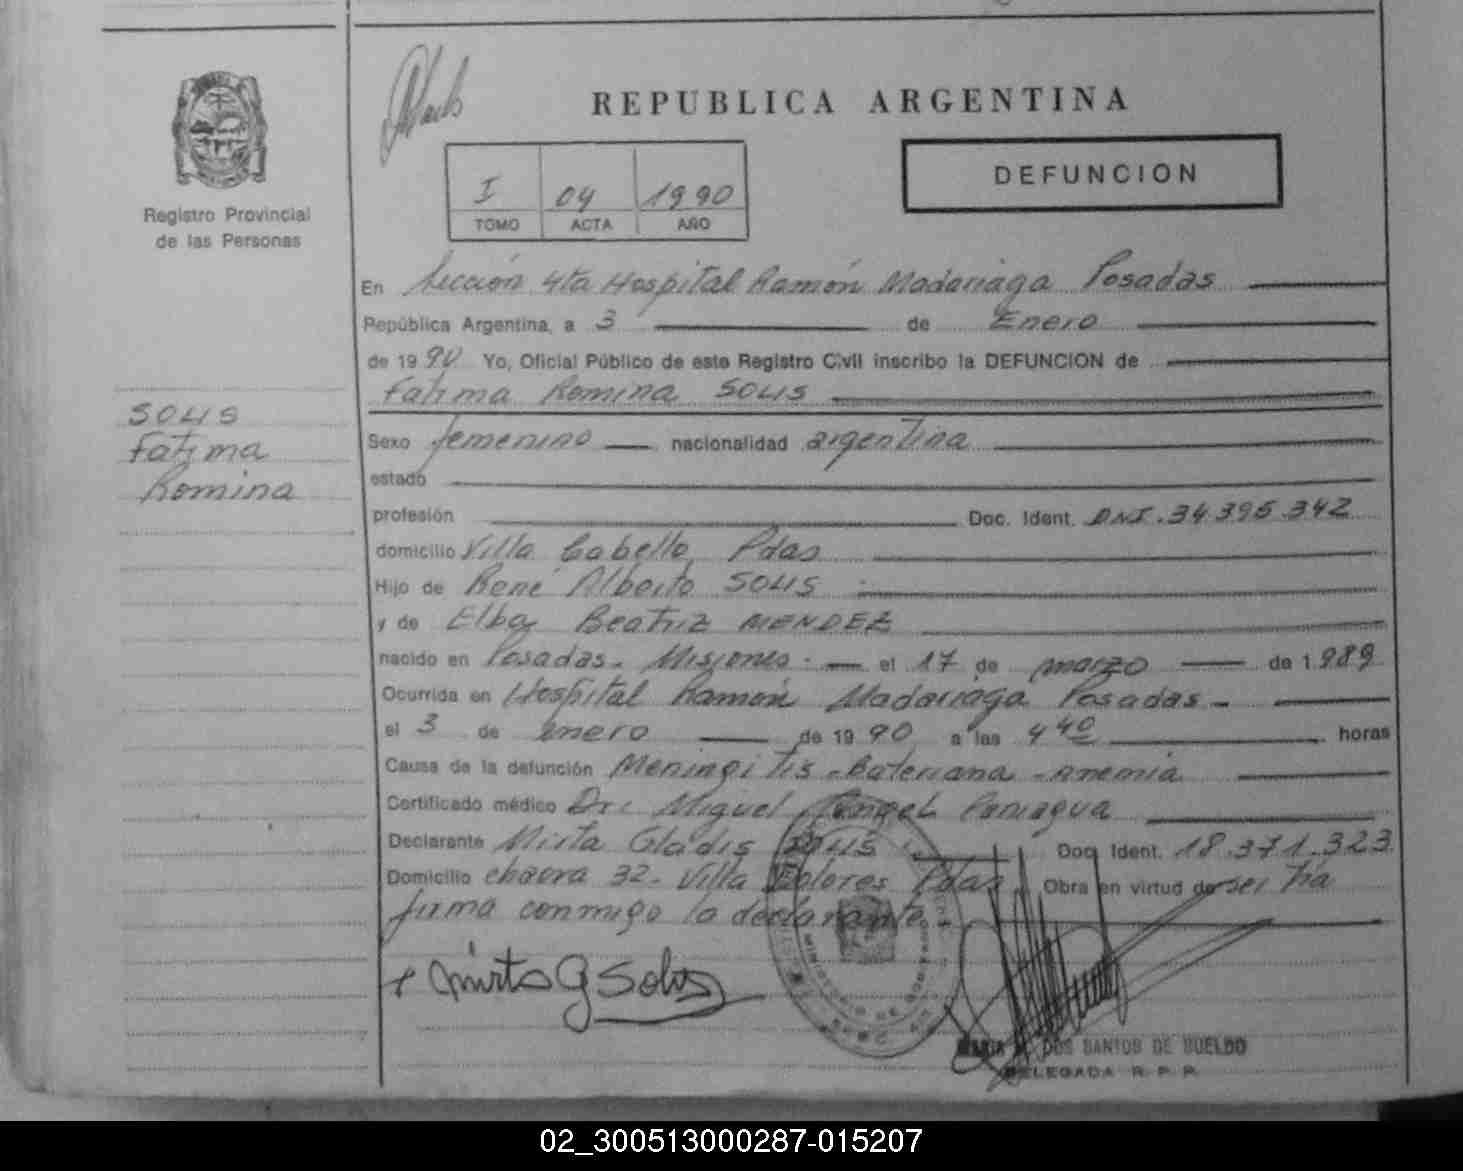 REPUBLICA ARGENTINA
DEFUNCION
I 04 1990
TOMO ACTA AÑO
Registro Provincial
de las Personas
SOLIS
Fatima
Romina
En Sección 4ta Hospital Ramón Madariaga Posadas
República Argentina, a 3 de Enero
de 1990 Yo, Oficial Público de este Registro Civil inscribo la DEFUNCION de
Fatima Romina SOLIS
Sexo femenino nacionalidad argentina
estado
profesión Doc. Ident. DNI. 34.395.342
domicilio Villa Cabello Pdas
Hijo de René Alberto SOLIS
y de Elba Beatriz MENDEZ
nacido en Posadas - Misiones - el 17 de marzo de 1989
Ocurrida en Hospital Ramón Madariaga Posadas -
el 3 de enero de 1990 a las 4 40 horas
Causa de la defunción Meningitis - Bateriana - anemia
Certificado médico Dr. Miguel Angel Paniagua
Declarante Mirta Gladis SOLIS Doc. Ident. 18.371.323
Domicilio chacra 32 - Villa Dolores Pdas. Obra en virtud de ser tía
firma conmigo la declarante
Mirta G Solis
MARIA DOS SANTOS DE SUELDO
DELEGADA R. P. P.
02_300513000287-015207